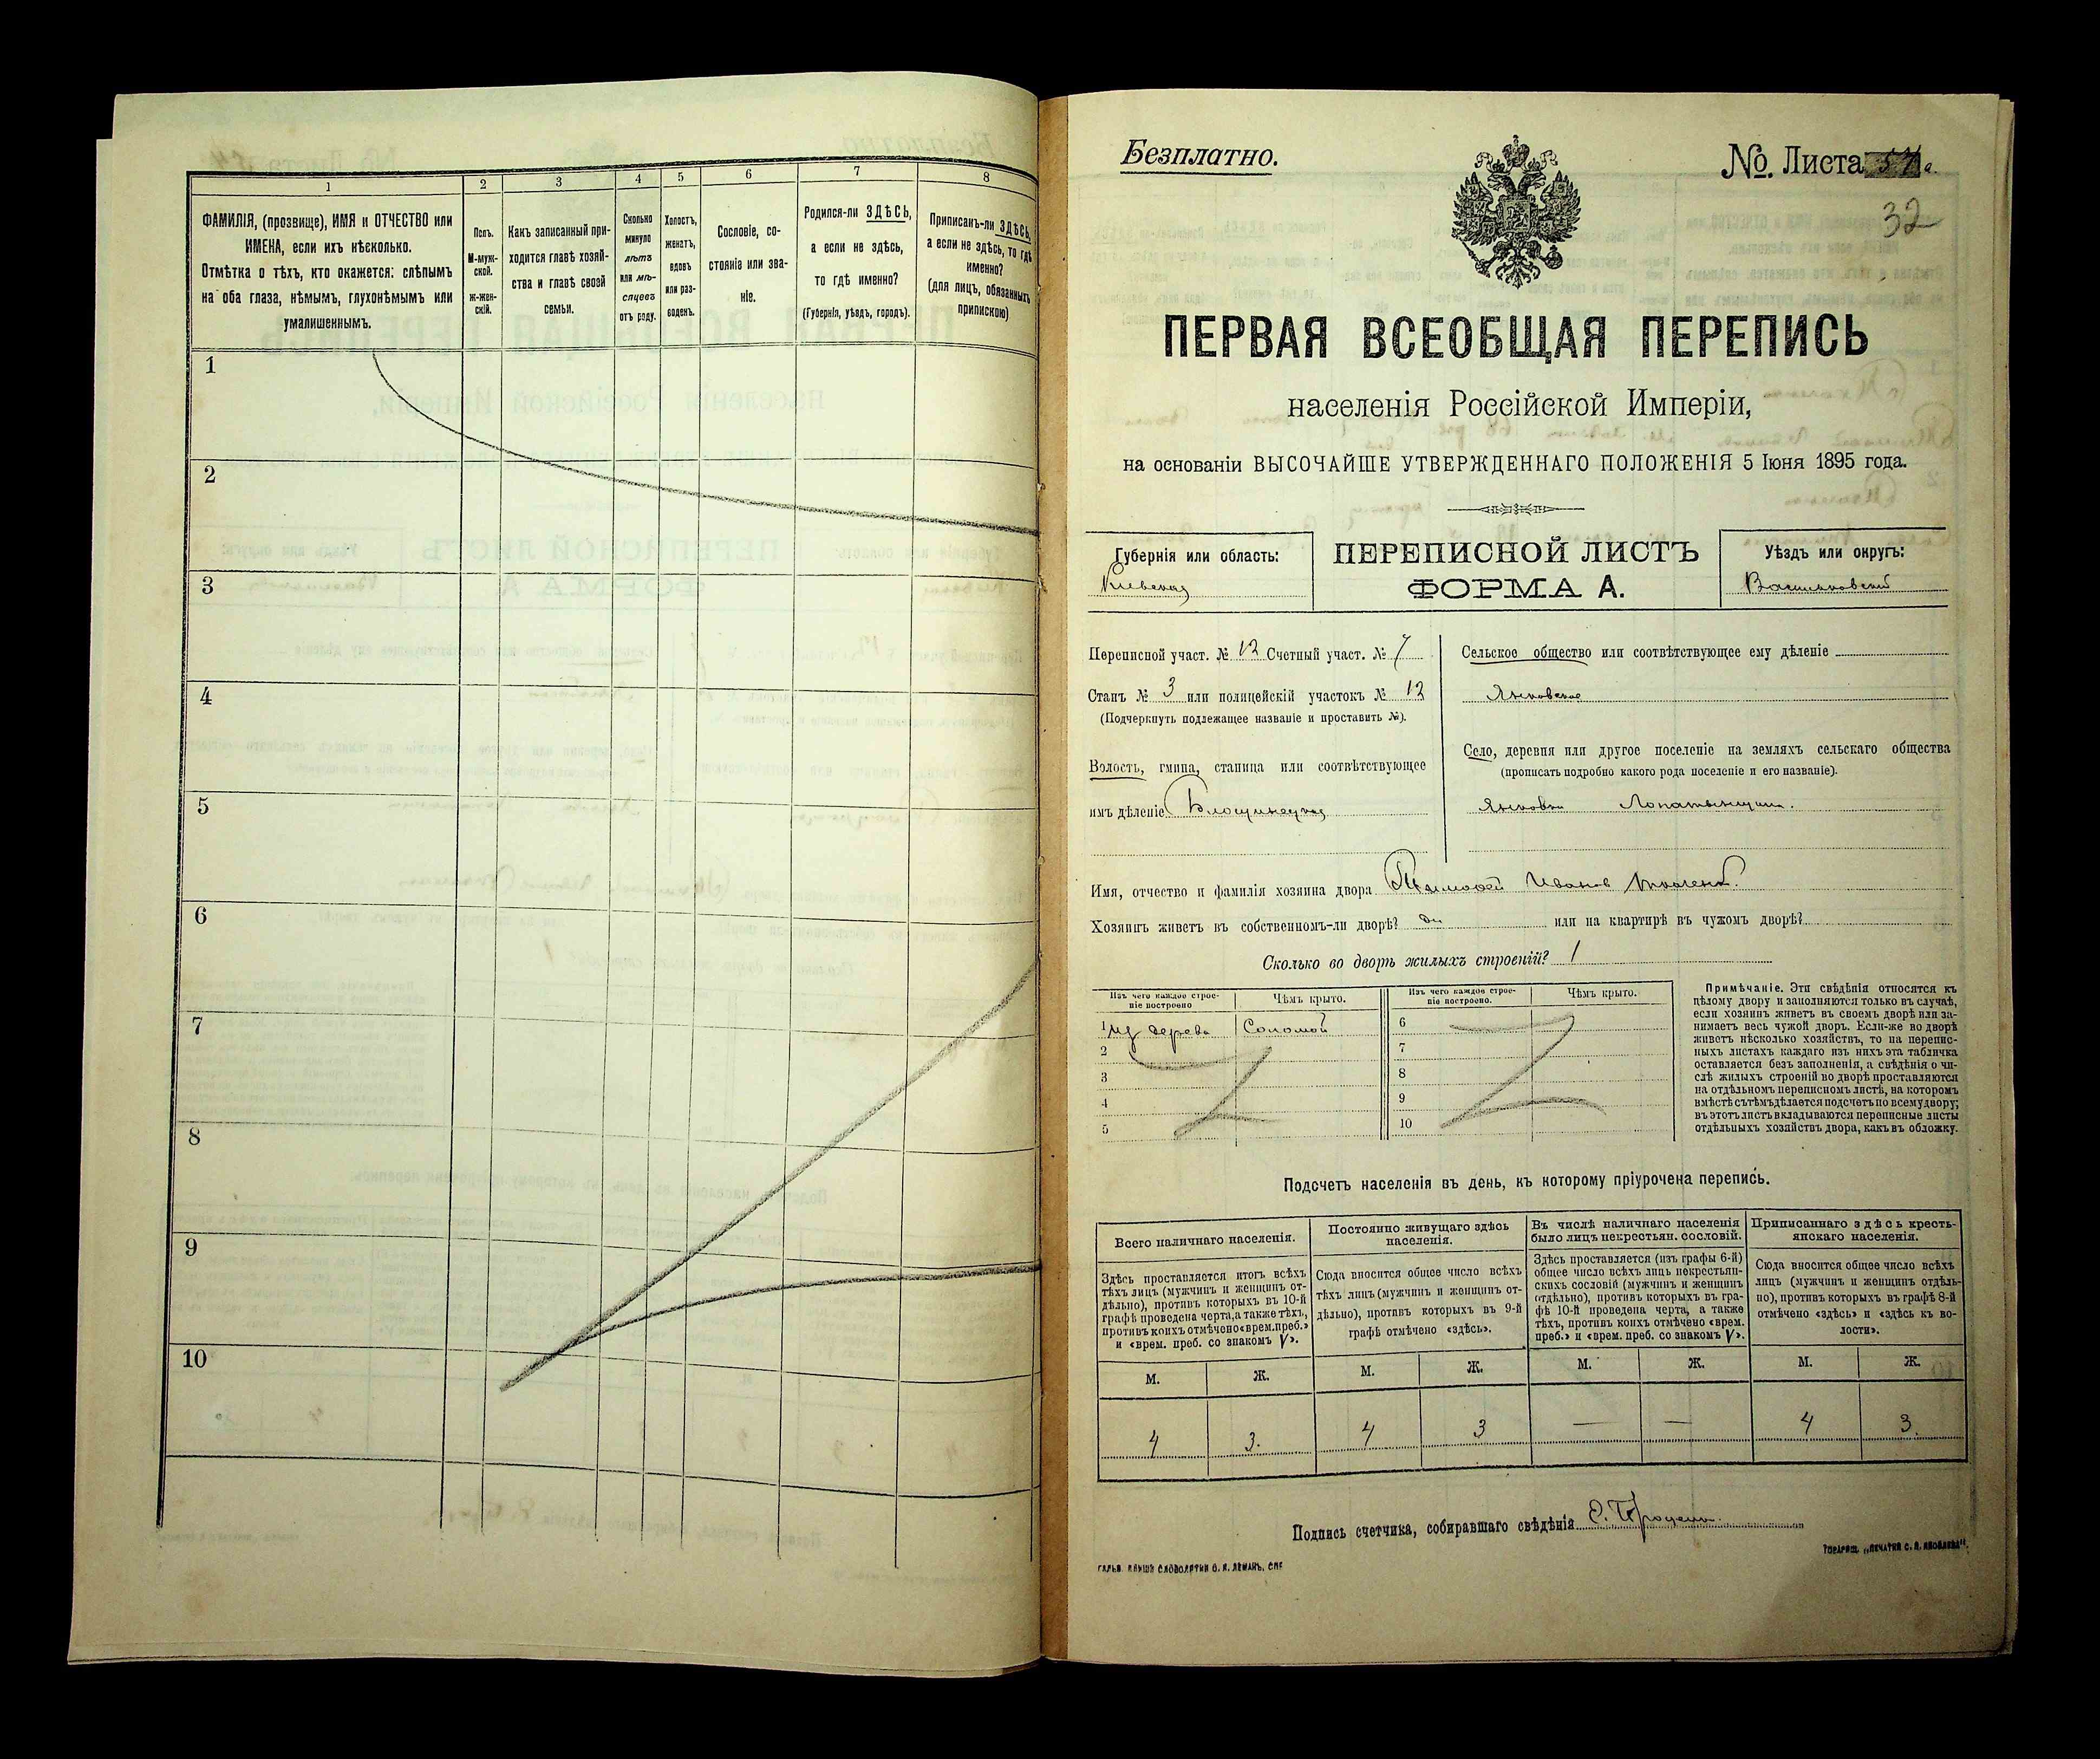 1
2
3
4
5
6
7
8
ФАМИЛІЯ, (прозвище), ИМЯ и ОТЧЕСТВО или
ИМЕНА, если ихъ нѣсколько.
Отмѣтка о тѣхъ, кто окажется: слѣпымъ
на оба глаза, нѣмымъ, глухонѣмымъ или
умалишеннымъ.
Полъ.
М-муж-
ской.
ж-жен-
скій.
Какъ записанный при-
ходится главѣ хозяй-
ства и главѣ своей
семьи.
Сколько
минуло
лѣтъ
или мѣ-
сяцевъ
отъ роду.
Холостъ,
женатъ,
вдовъ
или раз-
веденъ.
Сословіе, со-
стояніе или зва-
ніе.
Родился-ли ЗДѢСЬ,
а если не здѣсь,
то гдѣ именно?
(Губернія, уѣздъ, городъ).
Приписанъ-ли ЗДѢСЬ,
а если не здѣсь, то гдѣ
именно?
(для лицъ, обязанныхъ
припискою)
1
2
3
4
5
6
7
8
9
10
Безплатно.
№. Листа 57 а.
32
ПЕРВАЯ ВСЕОБЩАЯ ПЕРЕПИСЬ
населенія Россійской Имперіи,
на основаніи ВЫСОЧАЙШЕ УТВЕРЖДЕННАГО ПОЛОЖЕНІЯ 5 Іюня 1895 года.
Губернія или область:
Кіевская
ПЕРЕПИСНОЙ ЛИСТЪ
ФОРМА А.
Уѣздъ или округъ:
Васильковскій
Переписной участ. № 12 Счетный участ. № 7
Станъ № 3 или полицейскій участокъ № 12
(Подчеркнуть подлежащее названіе и проставить №).
Волость, гмина, станица или соотвѣтствующее
имъ дѣленіе Блощинецкая
Сельское общество или соотвѣтствующее ему дѣленіе
Янковское
Село, деревня или другое поселеніе на земляхъ сельскаго общества
(прописать подробно какого рода поселеніе и его названіе).
Янковка Лопатинщина.
Имя, отчество и фамилія хозяина двора Тимофей Иванов
Хозяинъ живетъ въ собственномъ-ли дворѣ? да или на квартирѣ въ чужомъ дворѣ?
Сколько во дворѣ жилыхъ строеній? 1
Изъ чего каждое строе-
ніе построено
Чѣмъ крыто.
Изъ чего каждое строе-
ніе построено.
Чѣмъ крыто.
1 из дерева Соломой
2
3
4
5
6
7
8
9
10
Примѣчаніе. Эти свѣдѣнія относятся къ
цѣлому двору и заполняются только въ случаѣ,
если хозяинъ живетъ въ своемъ дворѣ или за-
нимаетъ весь чужой дворъ. Если-же во дворѣ
живетъ нѣсколько хозяйствъ, то на перепис-
ныхъ листахъ каждаго изъ нихъ эта табличка
оставляется безъ заполненія, а свѣдѣнія о чи-
слѣ жилыхъ строеній во дворѣ проставляются
на отдѣльномъ переписномъ листѣ, на которомъ
вмѣстѣ съ тѣмъ дѣлается подсчетъ по всему двору;
въ этотъ листъ вкладываются переписные листы
отдѣльныхъ хозяйствъ двора, какъ въ обложку.
Подсчетъ населенія въ день, къ которому пріурочена перепись.
Всего наличнаго населенія.
Здѣсь проставляется итогъ всѣхъ
тѣхъ лицъ (мужчинъ и женщинъ от-
дѣльно), противъ которыхъ въ 10-й
графѣ проведена черта, а также тѣхъ,
противъ коихъ отмѣчено «врем. преб.»
и «врем. преб. со знакомъ V».
Постоянно живущаго здѣсь
населенія.
Сюда вносится общее число всѣхъ
тѣхъ лицъ (мужчинъ и женщинъ от-
дѣльно), противъ которыхъ въ 9-й
графѣ отмѣчено «здѣсь».
Въ числѣ наличнаго населенія
было лицъ некрестьян. сословій.
Здѣсь проставляется (изъ графы 6-й)
общее число всѣхъ лицъ некрестьян-
скихъ сословій (мужчинъ и женщинъ
отдѣльно), противъ которыхъ въ гра-
фѣ 10-й проведена черта, а также
тѣхъ, противъ коихъ отмѣчено «врем.
преб.» и «врем. преб. со знакомъ V».
Приписаннаго здѣсь кресть-
янскаго населенія.
Сюда вносится общее число всѣхъ
лицъ (мужчинъ и женщинъ отдѣль-
но), противъ которыхъ въ графѣ 8-й
отмѣчено «здѣсь» и «здѣсь къ во-
лости».
М. Ж. М. Ж. М. Ж. М. Ж.
4 3. 4 3 — — 4 3.
Подпись счетчика, собиравшаго свѣдѣнія
ГАЛЬВ. КЛИШЕ СЛОВОЛИТНИ О. И. ЛЕМАНЪ, СПБ
Товарищ. „ПЕЧАТНЯ С. П. ЯКОВЛЕВА".